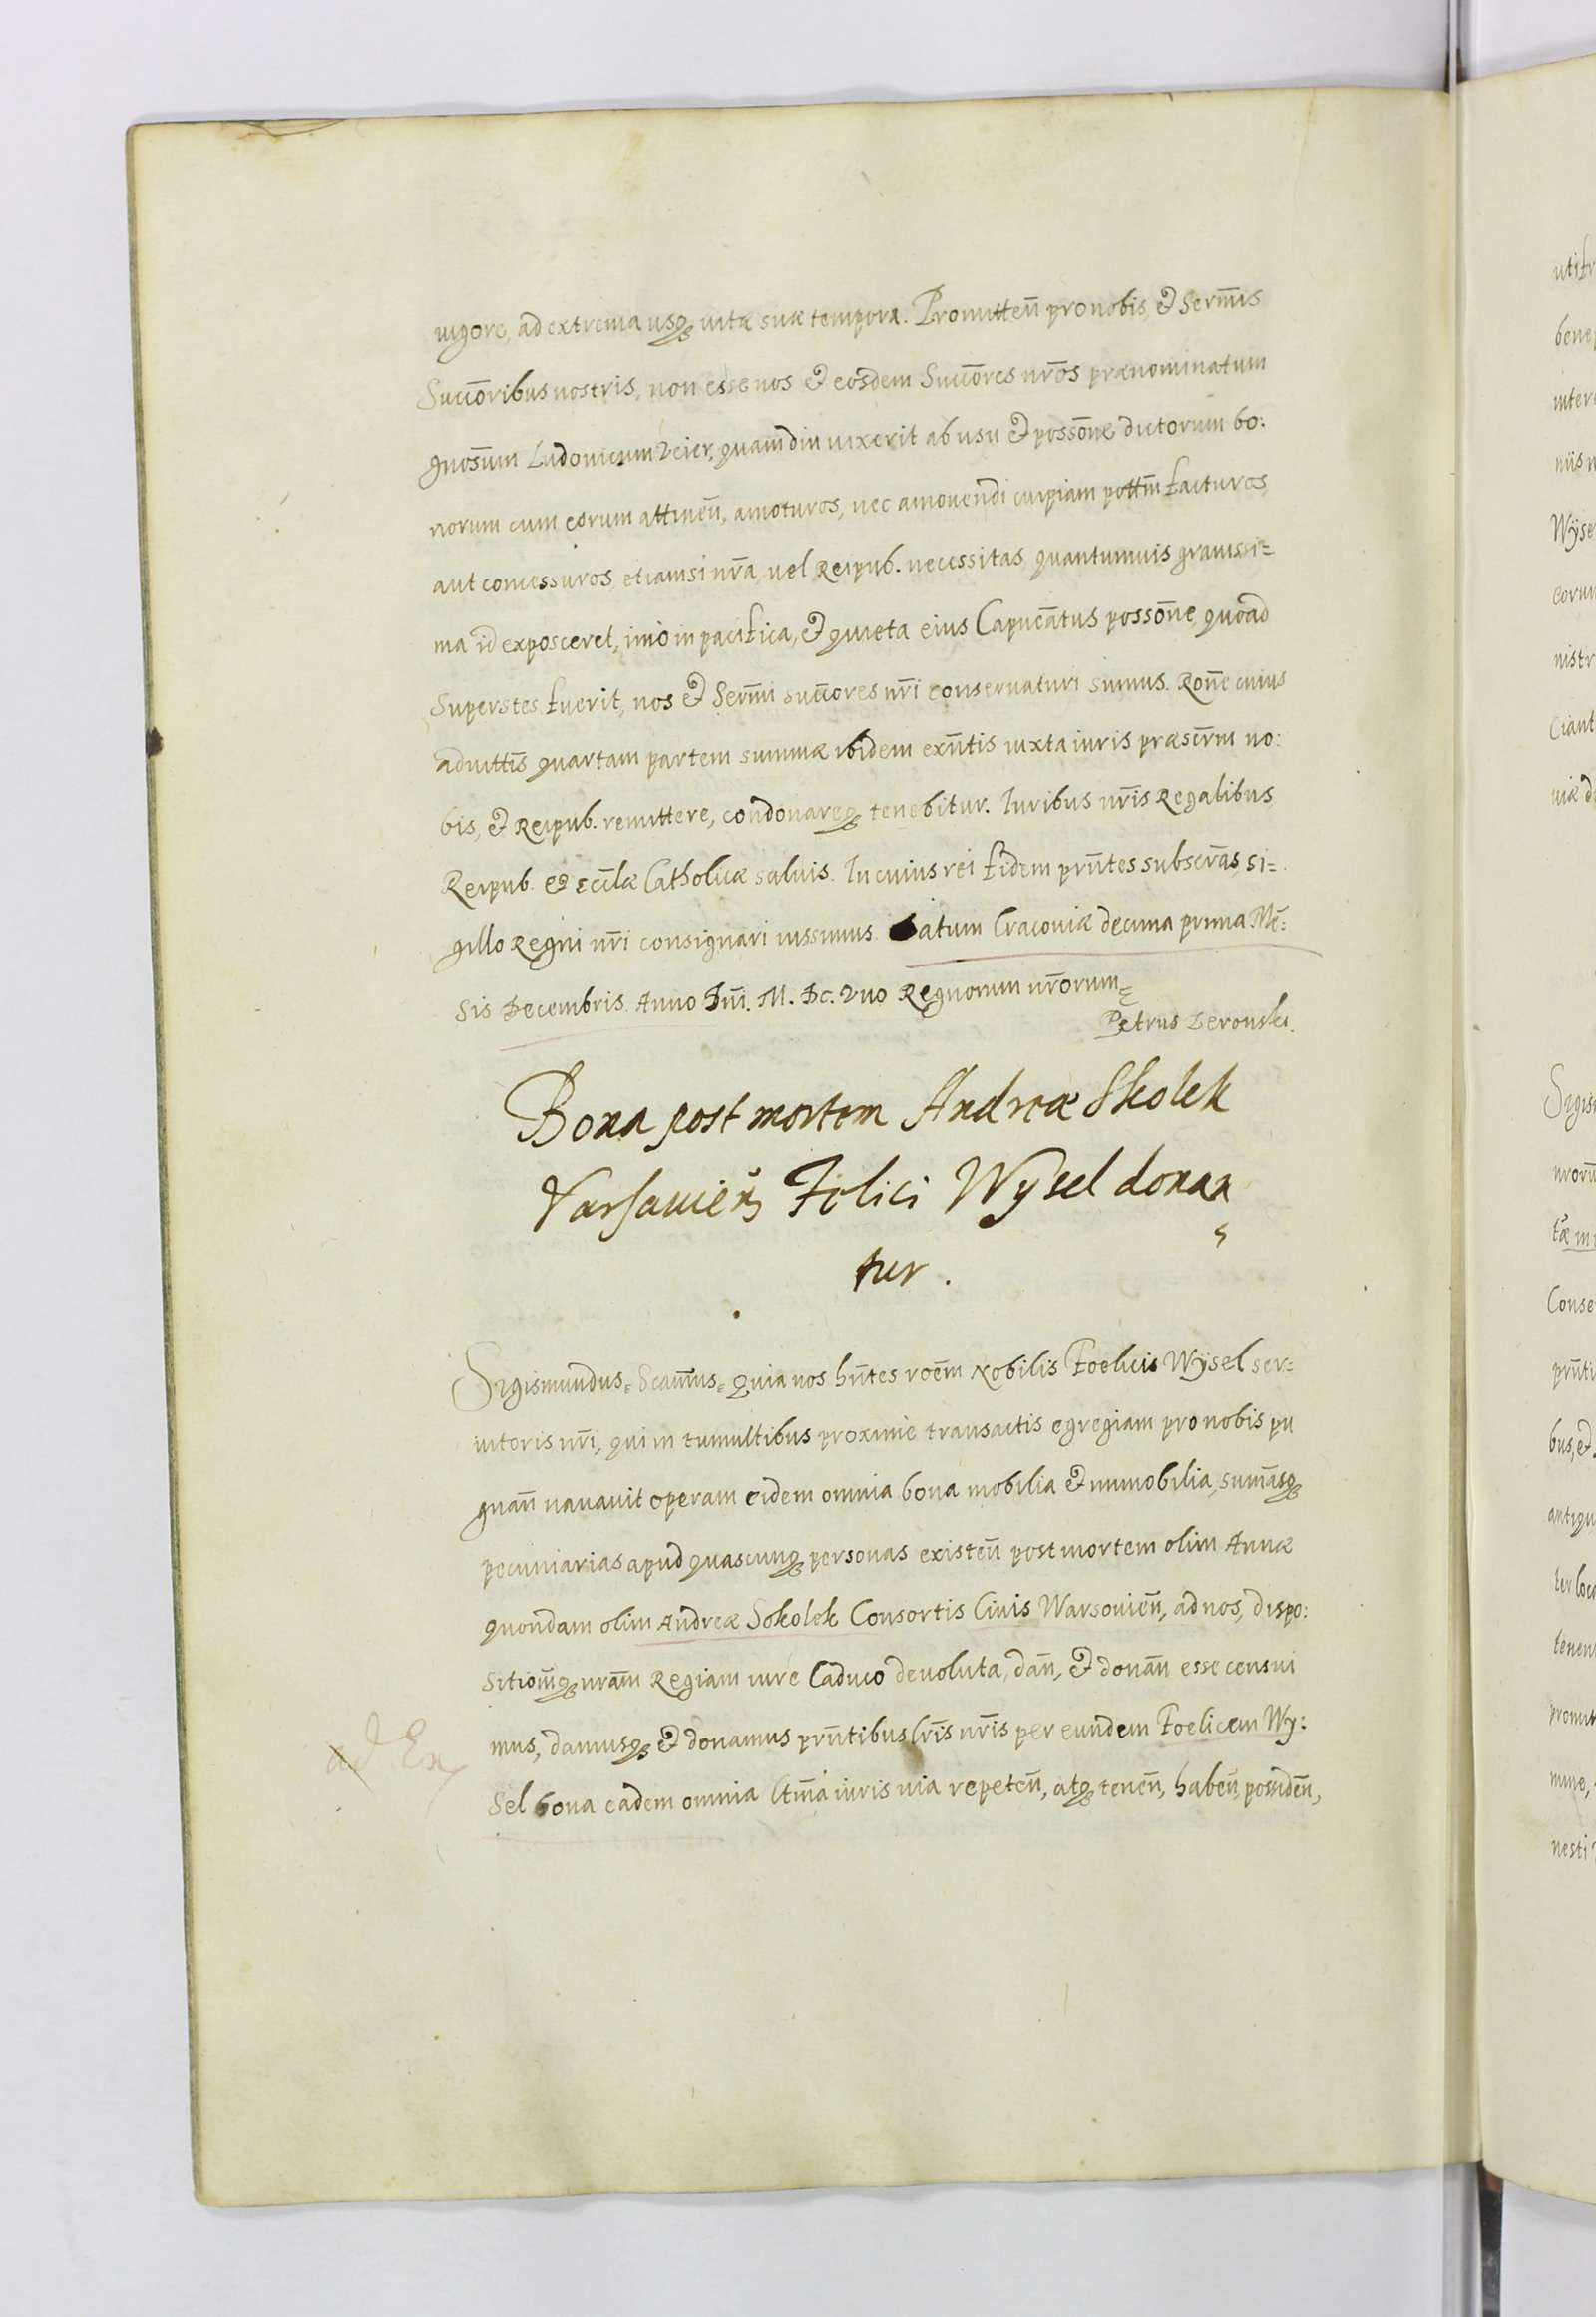 vigore, ad extrema usq₃ vitæ suæ tempora. Promitteñ pro nobis, et Serm̃is
Succ̃oribus nostris, non esse nos et eosdem Succ̃ores nr̃os prænominatum
gnos̃um Ludovicum Veier, quamdiu vixerit ab usu et possõne dictorum bo:
norum cum eorum attineñ, amoturos, nec amovendi cuipiam potttm̃ facturos
aut concessuros, etiamsi nr̃a, vel Reipub. necessitas quantumvis gravissi=
ma id exposceret, imo in pacifica, et quieta eius Capneãtus possõne, quoad
Superstes fuerit, nos et Serm̃i succ̃ores nr̃i conservaturi simus. Rõne cuius
advittĩs quartam partem summæ ibidem exñtis iuxta iuris præscr̃m no:
bis, et Reipub. remittere, condonareq₃ tenebitur. Iuribus nr̃is Regalibus
Reipub. et Eccl̃æ Catholicæ salvis. In cuius rei fidem prñtes subscr̃as, si=
gillo Regni nr̃i consignari iussimus. Datum Cracoviæ decima prima Mẽ:
sis Decembris. Anno Dñi. M. Dc. Vno Regnorum nr̃orum=
Petrus Zeronski.
Bona post mortem Andreæ Skolek
Varsavieñ Felici Wÿsel donan
tur.
Sigismundus= Scam̃us= Quia nos hñtes roẽm Nobilis Foelicis Wÿsel ser=
vitoris nr̃i, qui in tumultibus proxime transactis egregiam pro nobis pu
gnañ navavit operam eidem omnia bona mobilia et immobilia, sum̃asq₃
pecuniarias apud quascunq₃ personas existeñ post mortem olim Annæ
quondam olim Andreæ Sokolek Consortis Civis Warsovieñ, ad nos, dispo:
sitiom̃q₃ nr̃am Regiam iure Caduco devoluta, dañ, et donañ esse censui
mus, damusq₃ et donamus prñtibus lr̃is nr̃is per eundem Foelicem Wy:
sel bona eadem omnia ltm̃a iuris via repeteñ, atq₃ teneñ, habeñ, possideñ,
ad Ex